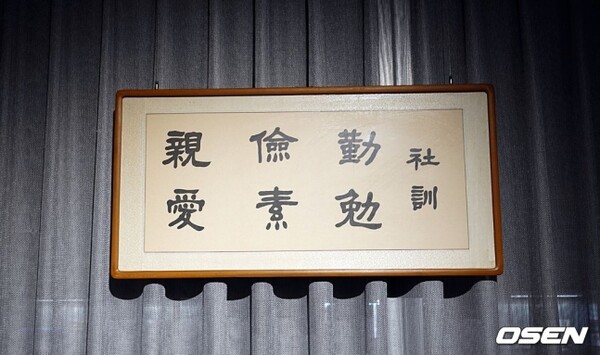 社訓
勤勉
儉素
親愛
OSEN